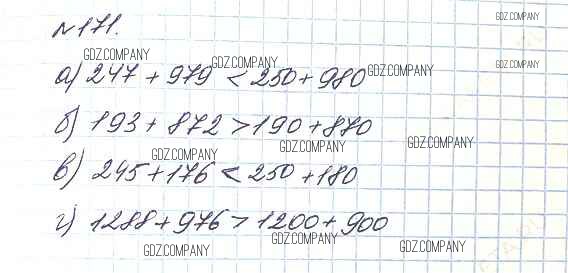 №171.
GDZ.COMPANY
GDZ.COMPANY GDZ.COMPANY GDZ.COMPANY GDZ.COMPANY
а) 247 + 979 < 250 + 980
GDZ.COMPANY
б) 193 + 872 > 190 + 870
GDZ.COMPANY GDZ.COMPANY GDZ.COMPANY
в) 245 + 176 < 250 + 180
GDZ.COMPANY
г) 1288 + 976 > 1200 + 900
GDZ.COMPANY GDZ.COMPANY GDZ.COMPANY